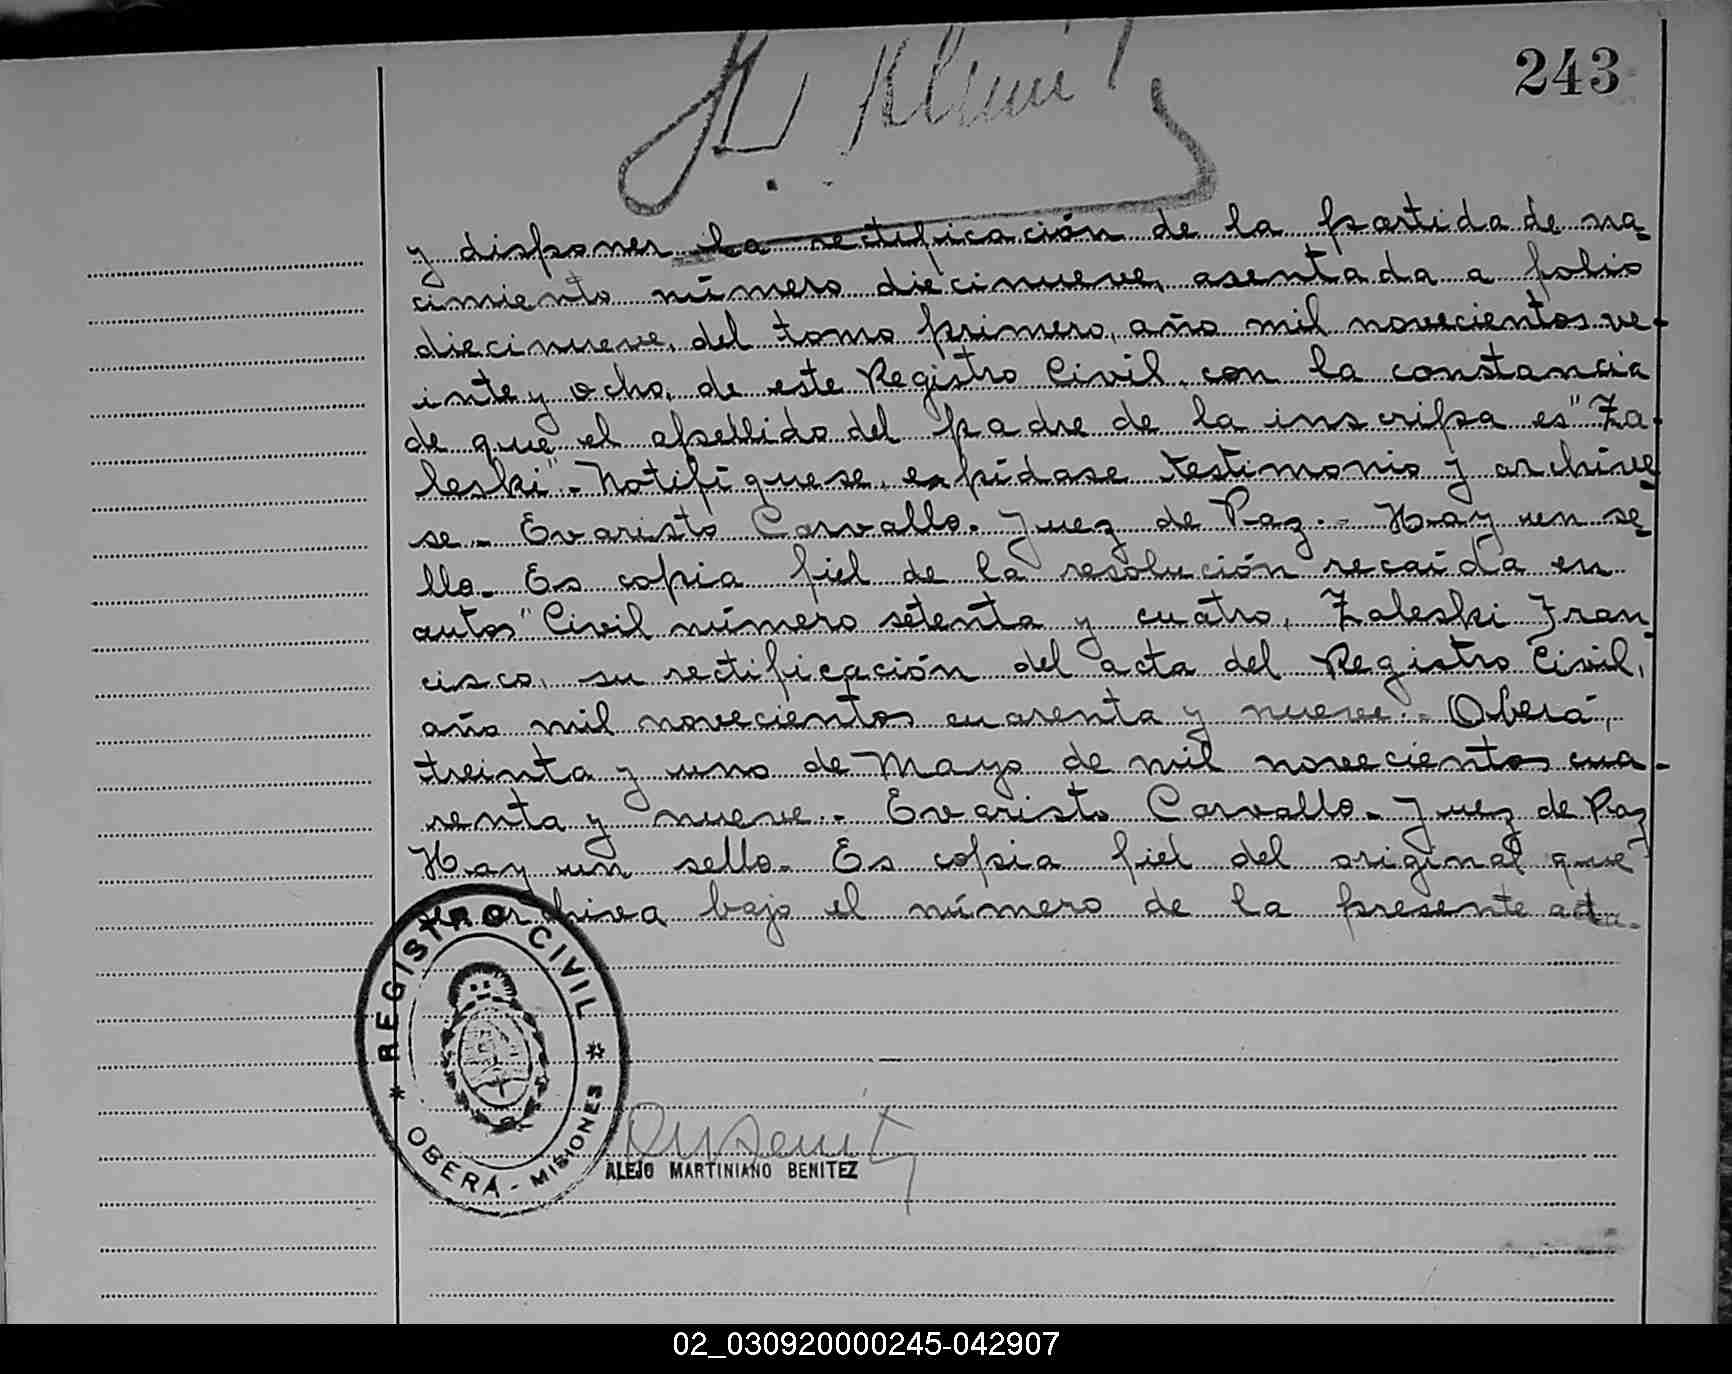 243
y disponer la rectificación de la partida de na-
cimiento número diecinueve, asentada a folio
diecinueve, del tomo primero, año mil novecientos ve-
inte y ocho, de este Registro Civil, con la constancia
de que el apellido del padre de la inscripta es "Za-
leski".- Notifíquese, expídase testimonio y archive
se.- Evaristo Carvallo.- Juez de Paz.- Hay un se-
llo.- Es copia fiel de la resolución recaída en
autos "Civil número setenta y cuatro, Zaleski Fran-
cisco, su rectificación del acta del Registro Civil,
año mil novecientos cuarenta y nueve.- Oberá,
treinta y uno de Mayo de mil novecientos cua-
renta y nueve.- Evaristo Carvallo.- Juez de Paz
Hay un sello.- Es copia fiel del original que
se archiva bajo el número de la presente acta.-
REGISTRO CIVIL
* OBERA - MISIONES *
ALEJO MARTINIANO BENITEZ
02_030920000245-042907